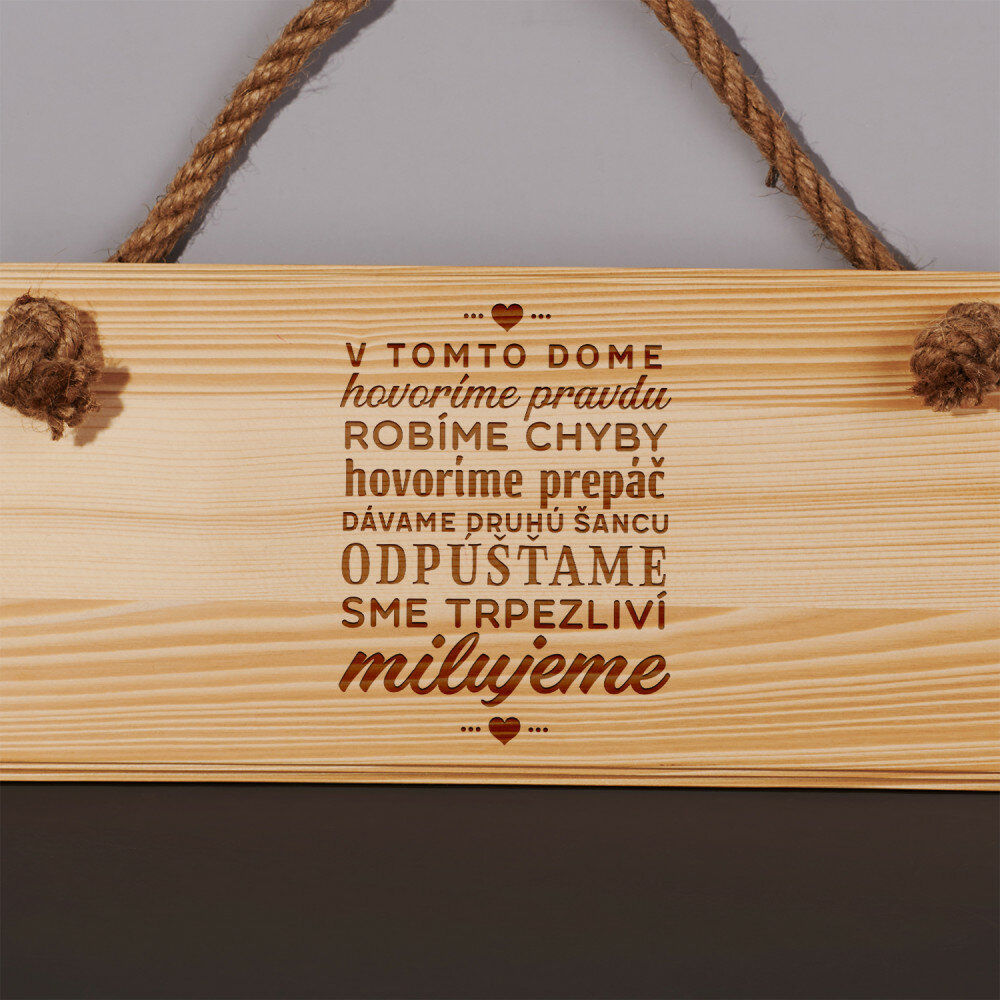 V TOMTO DOME
hovoríme pravdu
ROBÍME CHYBY
hovoríme prepáč
DÁVAME DRUHÚ ŠANCU
ODPÚŠŤAME
SME TRPEZLIVÍ
milujeme